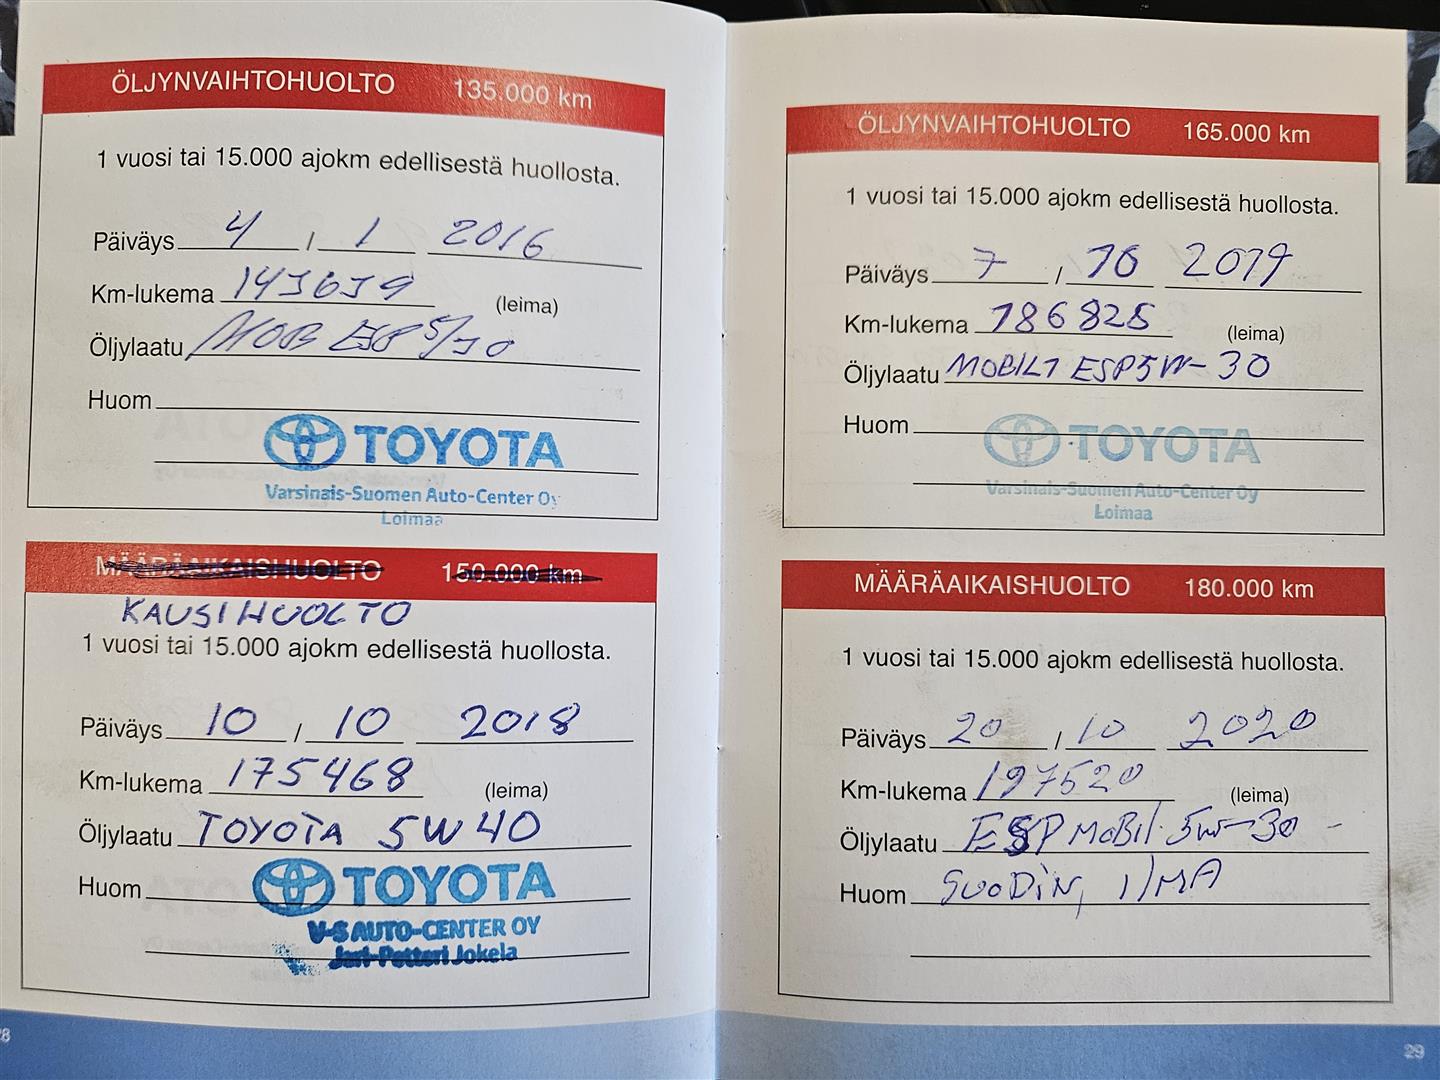 ÖLJYNVAIHTOHUOLTO 135.000 km
1 vuosi tai 15.000 ajokm edellisestä huollosta.
Päiväys 4 / 1 2016
Km-lukema (leima)
Öljylaatu MOB ESP 5/30
Huom
TOYOTA
Varsinais-Suomen Auto-Center Oy
Loimaa
MÄÄRÄAIKAISHUOLTO 150.000 km
KAUSIHUOLTO
1 vuosi tai 15.000 ajokm edellisestä huollosta.
Päiväys 10 / 10 2018
Km-lukema 175468 (leima)
Öljylaatu TOYOTA 5W40
Huom
TOYOTA
V-S AUTO-CENTER OY
Jari-Petteri Jokela
ÖLJYNVAIHTOHUOLTO 165.000 km
1 vuosi tai 15.000 ajokm edellisestä huollosta.
Päiväys 7 / 10 2019
Km-lukema 186825 (leima)
Öljylaatu MOBIL1 ESP5W-30
Huom
TOYOTA
Varsinais-Suomen Auto-Center Oy
Loimaa
MÄÄRÄAIKAISHUOLTO 180.000 km
1 vuosi tai 15.000 ajokm edellisestä huollosta.
Päiväys 20 / 10 2020
Km-lukema 197520 (leima)
Öljylaatu ESP MOBIL 5W-30 -
Huom SUODIN, ILMA
29